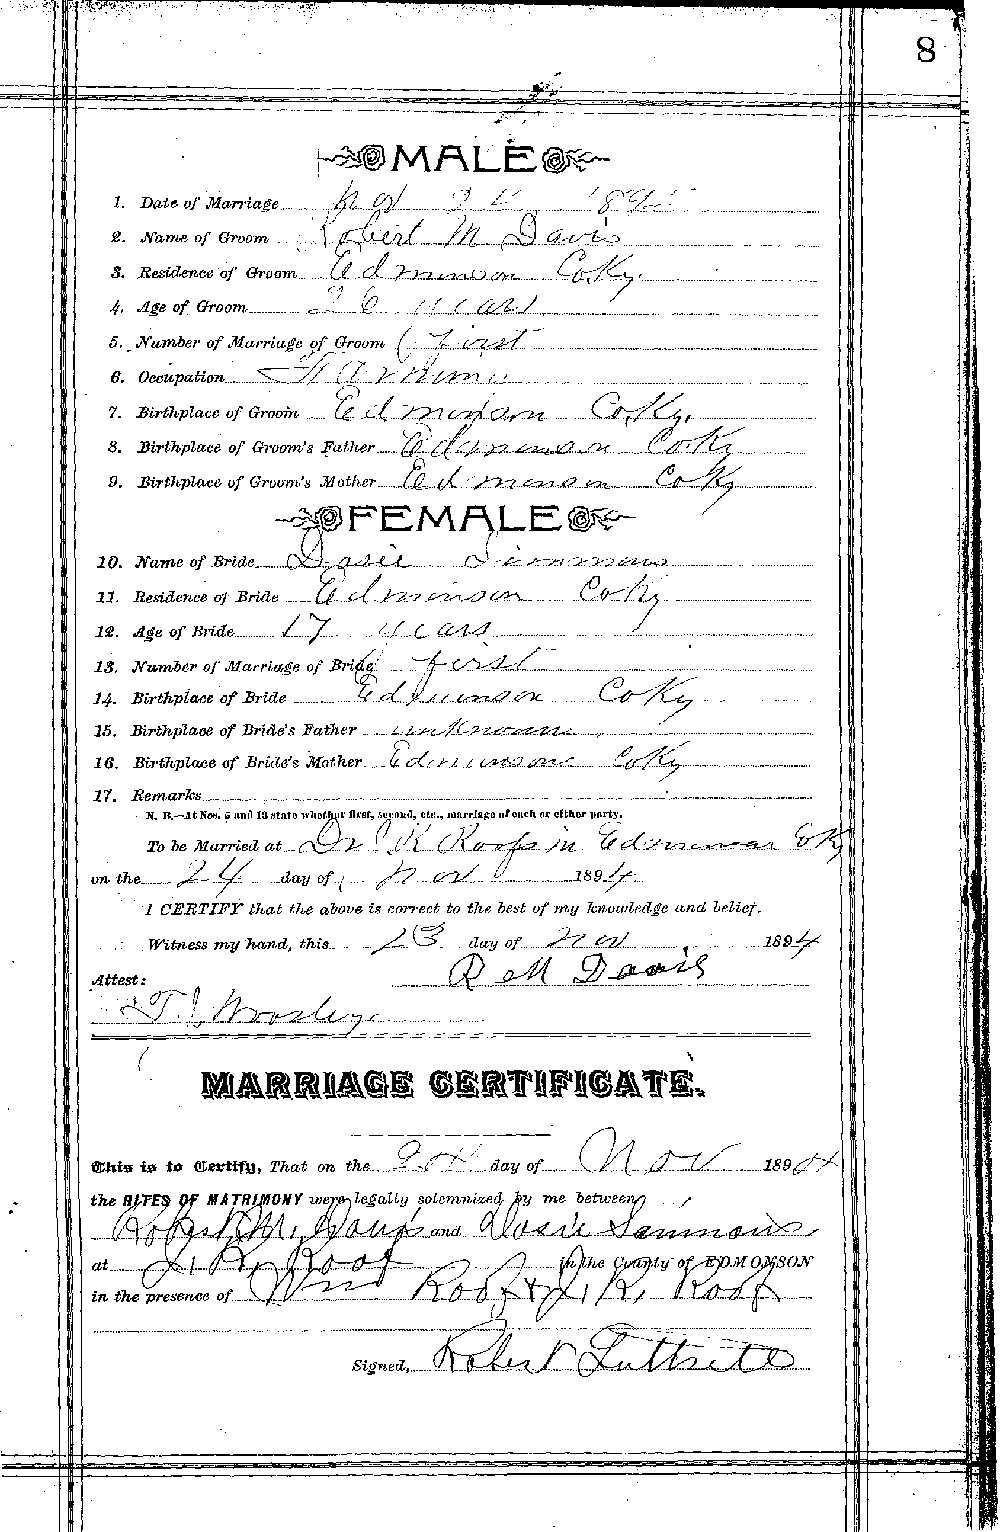 8
MALE
1. Date of Marriage Nov 189
2. Name of Groom Robert M Davis
3. Residence of Groom Edminson Co Ky.
4. Age of Groom 26 years
5. Number of Marriage of Groom first
6. Occupation Farming
7. Birthplace of Groom Edminson Co Ky.
8. Birthplace of Groom's Father Edminson Co Ky
9. Birthplace of Groom's Mother Edminson Co Ky
FEMALE
10. Name of Bride Dosie Simmons
11. Residence of Bride Edminson Co Ky
12. Age of Bride 17 years
13. Number of Marriage of Bride first
14. Birthplace of Bride Edminson Co Ky
15. Birthplace of Bride's Father unknown
16. Birthplace of Bride's Mother Edminson Co Ky
17. Remarks
N. B.—At Nos. 5 and 13 state whether first, second, etc., marriage of each or either party.
To be Married at K Roofs in Co Ky
on the 24 day of Nov 1894
I CERTIFY that the above is correct to the best of my knowledge and belief.
Witness my hand, this 23 day of Nov 1894
R M Davis
Attest:
Woosley
MARRIAGE CERTIFICATE.
This is to Certify, That on the 24 day of Nov 1894
the RITES OF MATRIMONY were legally solemnized by me between
Robert M. Davis and Dosie Sammons
at J. K. Roof in the County of EDMONSON
in the presence of Wm Roof & J. K. Roof
Signed, Robert